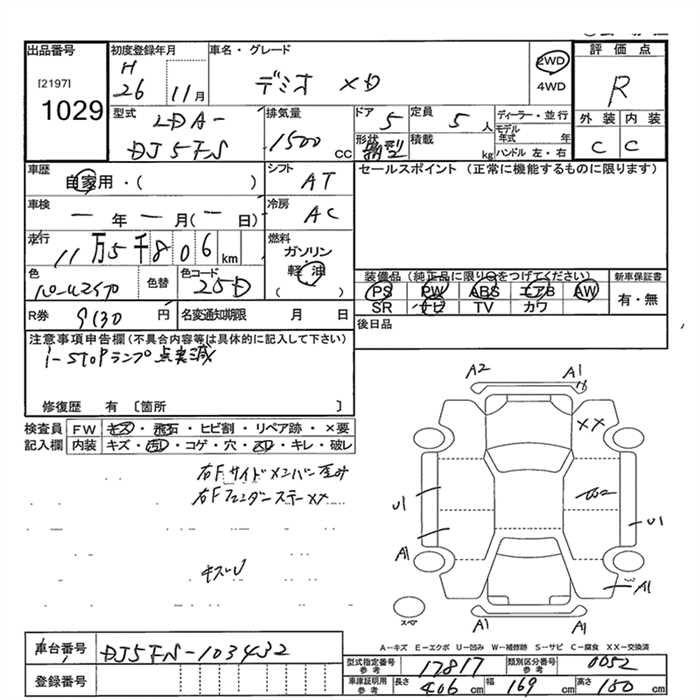 出品番号
[2197]
1029
初度登録年月
H
26 11月
車名・グレード
デミオ XD
2WD
4WD
評価点
R
外装 内装
C C
型式
LDA-
DJ5FS
排気量
1500 cc
ドア 5
定員 5人
形状 箱型
積載 kg
ディーラー・並行
モデル年式 年
ハンドル 左・右
車歴
自家用・( )
シフト AT
セールスポイント (正常に機能するものに限ります)
車検
ー年ー月(ー日)
冷房 AC
走行
11万5千806km
燃料
ガソリン
軽油
( )
色
パールホワイト
色替
色コード
25D
装備品(純正品に限り○をつけてください)
PS PW ABS エアB AW
SR ナビ TV カワ
新車保証書
有・無
R券 9130円
名変通知期限 月 日
後日品
注意事項申告欄(不具合内容等は具体的に記入して下さい)
i-STOPランプ点滅
修復歴 有〔箇所 〕
検査員記入欄
FW キズ・飛石・ヒビ割・リペア跡・×要
内装 キズ・汚れ・コゲ・穴・スレ・キレ・破レ
右Fサイドメンバー歪み
右Fフェンダーステー××
キズU
A2 A1
××
U1
A1
U1
A1
A1 A1
スペア
A-キズ E-エクボ U-凹み W-補修跡 S-サビ C-腐食 XX-交換済
車台番号
DJ5FS-103432
登録番号
型式指定番号 参考 17817
類別区分番号 参考 0052
車庫証明用 参考 長さ 406cm 幅 169cm 高さ 150cm